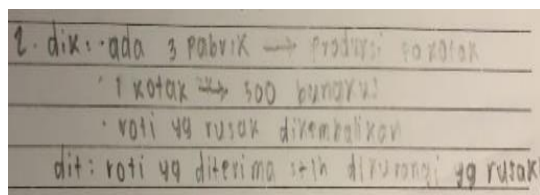 2. dik: · ada 3 pabrik → produksi 50 kotak
· 1 kotak → 500 bungkus
· roti yg rusak dikembalikan
dit: roti yg diterima stlh dikurangi yg rusak